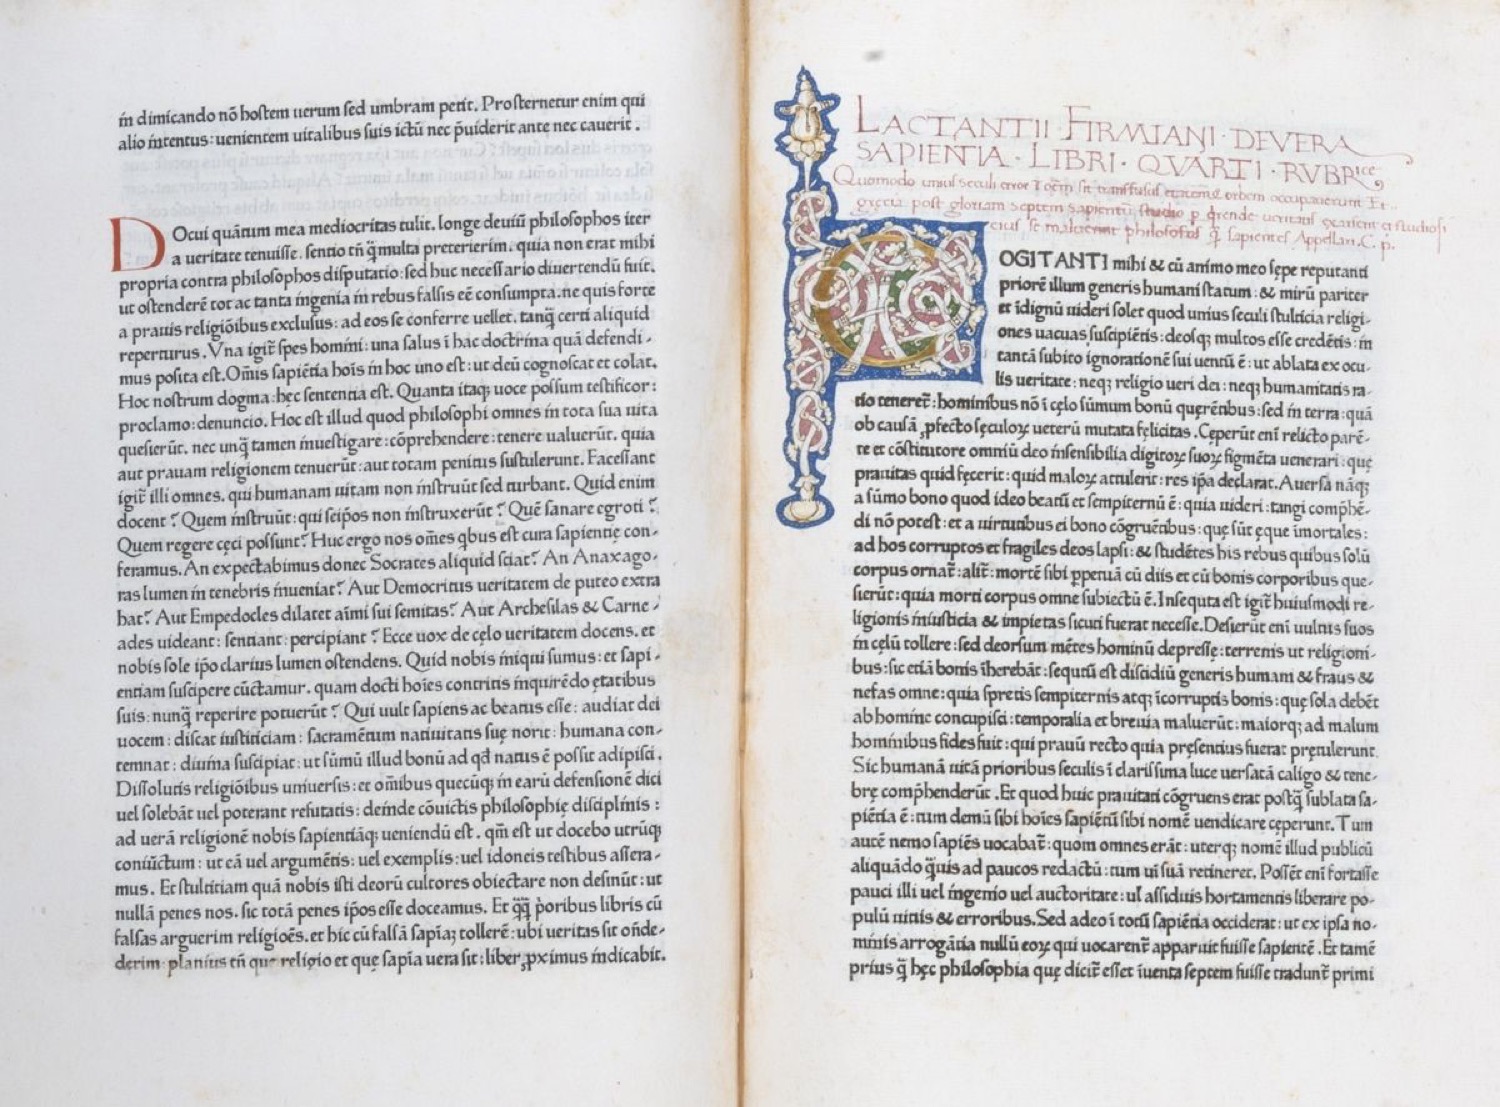 in dimicando nō hostem uerum sed umbram petit. Prosternetur enim qui
alio intentus: uenientem uitalibus suis ictū nec p̄uiderit ante nec cauerit.
DOcui quātum mea mediocritas tulit. longe deuiū philosophos iter
a ueritate tenuisse. sentio tn̄ q̄ multa preterierim. quia non erat mihi
propria contra philosophos disputatio: sed huc necessario diuertendū fuit.
ut ostenderē tot ac tanta ingenia in rebus falsis eē consumpta. ne quis forte
a prauis religiōibus exclusus: ad eos se conferre uellet. tanq̄ certi aliquid
reperturus. Vna igit̄ spes homini: una salus ī hac doctrina quā defendi-
mus posita est. Om̄is sapiētia hoīs in hoc uno est: ut deū cognoscat et colat.
Hoc nostrum dogma: hęc sententia est. Quanta itaqꝫ uoce possum testificor:
proclamo: denuncio. Hoc est illud quod philosophi omnes in tota sua uita
quesierūt. nec unq̄ tamen inuestigare: cōprehendere: tenere ualuerūt. quia
aut prauam religionem tenuerūt: aut totam penitus sustulerunt. Facessant
igit̄ illi omnes. qui humanam uitam non instruūt sed turbant. Quid enim
docent? Quem instruūt: qui seip̄os non instruxerūt? Quē sanare ęgroti?
Quem regere cęci possunt? Huc ergo nos om̄es qbus est cura sapientię con-
feramus. An expectabimus donec Socrates aliquid sciat? An Anaxago-
ras lumen in tenebris inueniat? Aut Democritus ueritatem de puteo extra
hat? Aut Empedocles dilatet aīmi sui semitas? Aut Archesilas & Carne-
ades uideant: sentiant: percipiant? Ecce uox de cęlo ueritatem docens. et
nobis sole ip̄o clarius lumen ostendens. Quid nobis iniqui sumus: et sapi-
entiam suscipere cūctamur. quam docti hoīes contritis inquirēdo ętatibus
suis: nunq̄ reperire potuerūt? Qui uult sapiens ac beatus esse: audiat dei
uocem: discat iustitiam: sacramētum natiuitatis suę norit: humana con-
temnat: diuina suscipiat: ut sūmū illud bonū ad qd̄ natus ē possit adipisci.
Dissolutis religiōibus uniuersis: et om̄ibus quecūqꝫ in earū defensionē dici
uel solebāt uel poterant refutatis: deinde cōuictis philosophię disciplinis:
ad uerā religionē nobis sapientiāqꝫ ueniendū est. qm̄ est ut docebo utrūqꝫ
coniūctum: ut eā uel argumētis: uel exemplis: uel idoneis testibus assera-
mus. Et stultitiam quā nobis isti deorū cultores obiectare non desinūt: ut
nullā penes nos. sic totā penes ip̄os esse doceamus. Et q̄q̄ p̄oribus libris cū
falsas arguerim religioēs. et hic cū falsā sapīaꝫ tollerē: ubi ueritas sit on̄de-
derim planius tn̄ que religio et quę sapīa uera sit: liber ꝓximus indicabit.
LACTANTII · FIRMIANI · DE VERA
SAPIENTIA · LIBRI · QVARTI · RVBRice
Quomodo unius seculi error orbem occupauerunt Et
gręcia post gloriam septem sapientū studio
eius se maluerint philosofos q̄ sapientes Appellari. C. p.
COGITANTI mihi & cū animo meo sępe reputanti
priorē illum generis humani statum: & mirū pariter
et īdignū uideri solet quod unius seculi stulticia religi-
ones uacuas suscipiētis: deosqꝫ multos esse credētis: in
tantā subito ignorationē sui uentū ē: ut ablata ex ocu-
lis ueritate: neqꝫ religio ueri dei: neqꝫ humanitatis ra-
tio teneret̄: hominibus nō ī cęlo sūmum bonū quęrētibus: sed in terra: quā
ob causā ꝓfecto sęculoꝝ ueterū mutata fęlicitas. Cęperūt enī relicto parē-
te et cōstitutore omniū deo insensibilia digitoꝝ suoꝝ figmēta uenerari: quę
prauitas quid fęcerit: quid maloꝝ attulerit: res ip̄a declarat. Auersa nāqꝫ
a sūmo bono quod ideo beatū et sempiternū ē: quia uideri: tangi comp̄hē-
di nō potest: et a uirtutibus ei bono cōgruētibus: quę sūt ęque īmortales:
ad hos corruptos et fragiles deos lapsi: & studētes his rebus quibus solū
corpus ornat̄: alit̄: mortē sibi ꝑpetuā cū diis et cū bonis corporibus que-
sierūt: quia morti corpus omne subiectū ē. Insequta est igit̄ huiusmodi re-
ligionis iniusticia & impietas sicuti fuerat necesse. Desierūt enī uultus suos
in cęlū tollere: sed deorsum mētes hominū depressę: terrenis ut religioni-
bus: sic etiā bonis īherebāt: sequtū est discidiū generis humani & fraus &
nefas omne: quia spretis sempiternis atqꝫ īcorruptis bonis: quę sola debēt
ab homine concupisci: temporalia et breuia maluerūt: maiorqꝫ ad malum
hominibus fides fuit: qui prauū recto quia pręsentius fuerat prętulerunt.
Sic humanā uitā prioribus seculis ī clarissima luce uersatā caligo & tene-
brę comp̄henderūt. Et quod huic prauitati cōgruens erat postq̄ sublata sa-
piētia ē: tum demū sibi hoīes sapiētū sibi nomē uendicare cęperunt. Tum
autē nemo sapiēs uocabat̄: quom omnes erāt: uterqꝫ nomē illud publicū
aliquādo q̄uis ad paucos redactū: tum uī suā retineret. Possēt enī fortasse
pauci illi uel ingenio uel auctoritate: ul̄ assiduis hortamentis liberare po-
pulū uitiis & erroribus. Sed adeo ī totū sapiētia occiderat: ut ex ipsa no-
minis arrogātia nullū eoꝝ qui uocarent̄ apparuit fuisse sapientē. Et tamē
prius q̄ hęc philosophia quę dicit̄ esset īuenta septem fuisse tradunt̄ primi